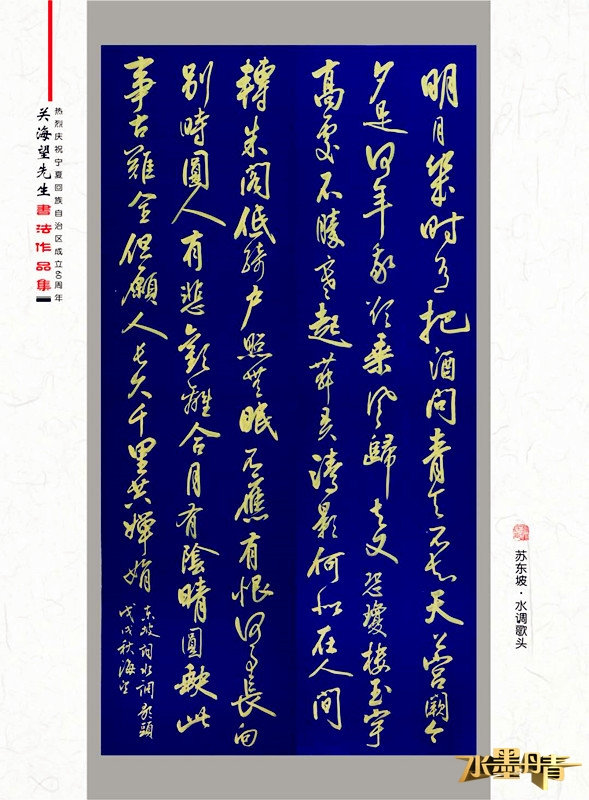 明月幾时有把酒问青天不知天上宫阙今
夕是何年我欲乘风歸去又恐瓊楼玉宇
高处不勝寒起舞弄清影何似在人间
轉朱阁低绮户照無眠不應有恨何事長向
别時圓人有悲歡離合月有陰晴圓缺此
事古難全但願人長久千里共嬋娟
东坡词水调歌頭
戊戌秋海望
苏东坡·水调歌头
热烈庆祝宁夏回族自治区成立60周年
关海望先生書法作品集
水墨丹青